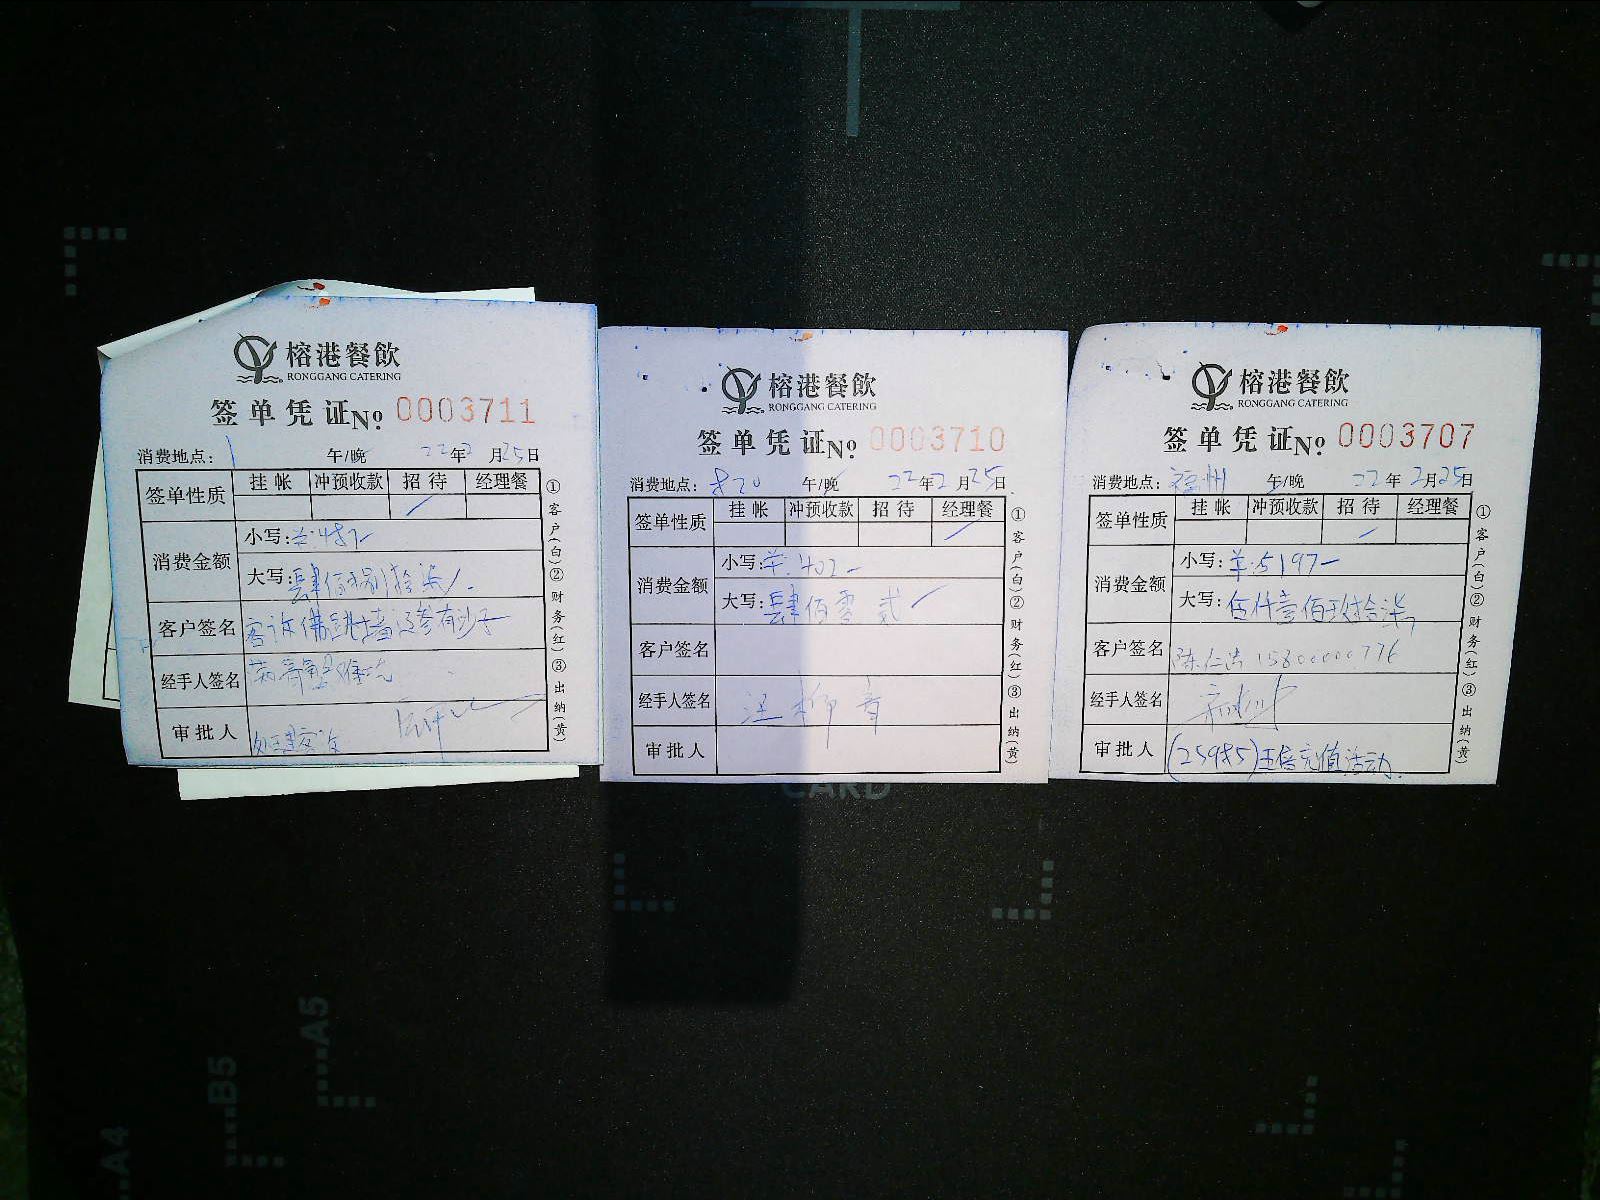 榕港餐飲
RONGGANG CATERING
签单凭证No. 0003711
消费地点： 午/晚 22年2月25日
签单性质 挂帐 冲预收款 招待 经理餐
消费金额
小写：¥:487-
大写：肆佰捌拾柒
客户签名 客诉佛跳墙辽参有沙子
经手人签名
审批人
①客户(白)②财务(红)③出纳(黄)
榕港餐飲
RONGGANG CATERING
签单凭证No. 0003710
消费地点：820 午/晚 22年2月25日
签单性质 挂帐 冲预收款 招待 经理餐
消费金额
小写：¥:402-
大写：肆佰零贰
客户签名
经手人签名 汪柳青
审批人
①客户(白)②财务(红)③出纳(黄)
榕港餐飲
RONGGANG CATERING
签单凭证No. 0003707
消费地点：福州 午/晚 22年2月25日
签单性质 挂帐 冲预收款 招待 经理餐
消费金额
小写：¥:5197-
大写：伍仟壹佰玖拾柒
客户签名 陈仁 15800000776
经手人签名
审批人 (25985)五倍充值活动.
①客户(白)②财务(红)③出纳(黄)
CARD
A5
B5
A4